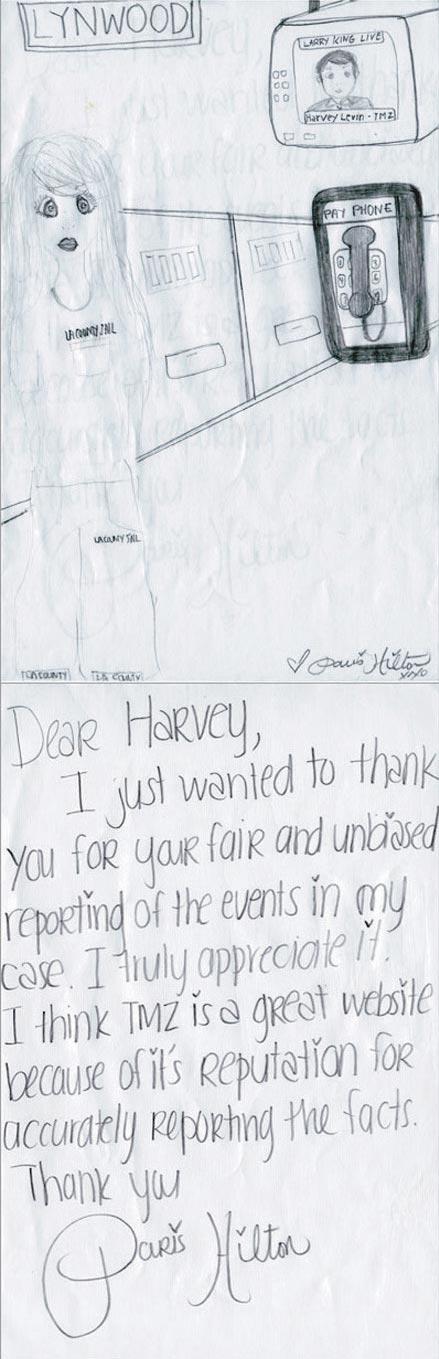 LYNWOOD
LARRY KING LIVE
Harvey Levin - TMZ
PAY PHONE
LA COUNTY JAIL
LA COUNTY JAIL
LA COUNTY
L.A. COUNTY
♡ Paris Hilton
XOXO
Dear Harvey,
I just wanted to thank
you for your fair and unbiased
reporting of the events in my
case. I truly appreciate it.
I think TMZ is a great website
because of it's reputation for
accurately reporting the facts.
Thank you
Paris Hilton